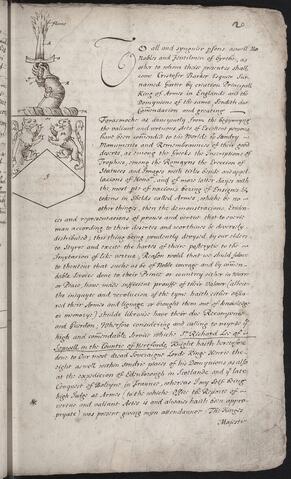 flame
To all and synguler psons aswell No
bles and Gentilmen of byrthe, as
other to whom these presentes shall
come Cristofer Barker Esquer Sur
named Garter by creation Principall
King of Armes in England and the
Domynions of the same Sendith due
Comendacion and greating
Forasmoche as auncyently from the begynnyng
the valiant and vertuous Actes of Excellent persons
have been comended to the Worlde by Sondry
Monumentes and Remembrances of their good
deserts, as among the Greekes the Inscriptions of
Trophies, among the Romayns the Erection of
Statues and Images with titles besids and appel
lacions of Hono^r, and of more latter dayes with
the most pte of nacions bering of Ensignes by
tokens in Shelds called Armes, whiche be no
other things, then the demonstracions, Eviden
ces and representacions of prowes and vertue that to everie
man according to their deserts and worthines be diversly
distributed; this thing being prudently devysed by our elders
to styrre and excite the harts of their posterytie to the
Imytacion of like vertue, Reason wold that we shuld have
to thentent that suche as be of Noble courage and by comen
dable Service done to their Prince or countrey either in warre
or Peace, have made sufficient prouffe of their Valour (albeit
the iniquyte and revolucion of the tyme haith either effa
ced their Armes and Lignage, or brought them out of knowledge
or memorye) shulde likewise have their due Recompence
and Guerdon; Wherfore considering and calling to mynde the
high and comendable Service whiche S^r Richard Lee of
Sopwell in the Countie of Hertforde Knight haith heretofore
done to Our most dread Soveraigne Lord Kinge Henrie the
eight aswell within sondrie places of his Domynions as also
at the expedicion of Edenborough in Scotlande and y^e late
Conquest of Boloyne in Fraunce, whereas I my self being
high Judge at Armes (to the whiche Office the Reporte of
vertue and valiant Actes is and alwaies haith ben appro
pryate) was present giving myn attendannce The Kinges
Majestie